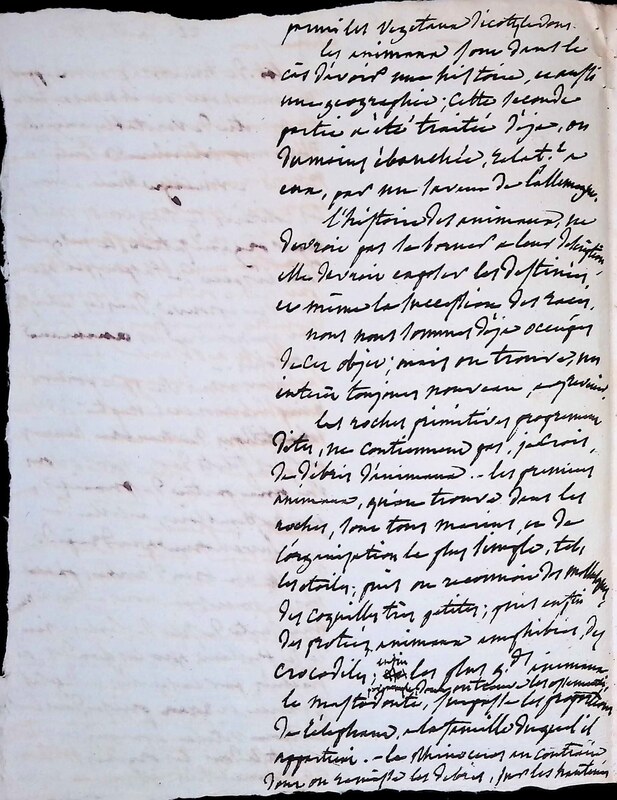 parmi les vegetaux dicotyledons.
les animaux sont dans le
cas d'avoir une histoire, et aussi
une geographie; Cette seconde
partie a été traitée déja, ou
du moins ébauchée, relat.t a
eux, par un savant de l'allemagne.
l'histoire des animaux, ne
devroit pas se borner a leur description,
elle devroit exposer les destinées,
et même la succession des races.
nous nous sommes déja occupés
de cet objet; mais on trouve, un
interêt toujours nouveau, a y revenir.
les roches primitives proprement
dites, ne contiennent pas, je crois,
de débris d'animaux. - les premiers
animaux, qu'on trouve dans les
roches, sont tous marins, et de
l'organisation la plus simple, tels
les étoiles; puis on reconnoit des mollusques,
des coquilles très petites; puis enfin
des animaux amphibies, des
crocodiles; enfin les plus gds animaux
dont on trouve les ossements,
le mastodonte, surpasse les proportions
de l'éléphant, a la famille duquel il
appartient. - le Rhinoceros au contraire
dont on les debris, sur les hauteurs